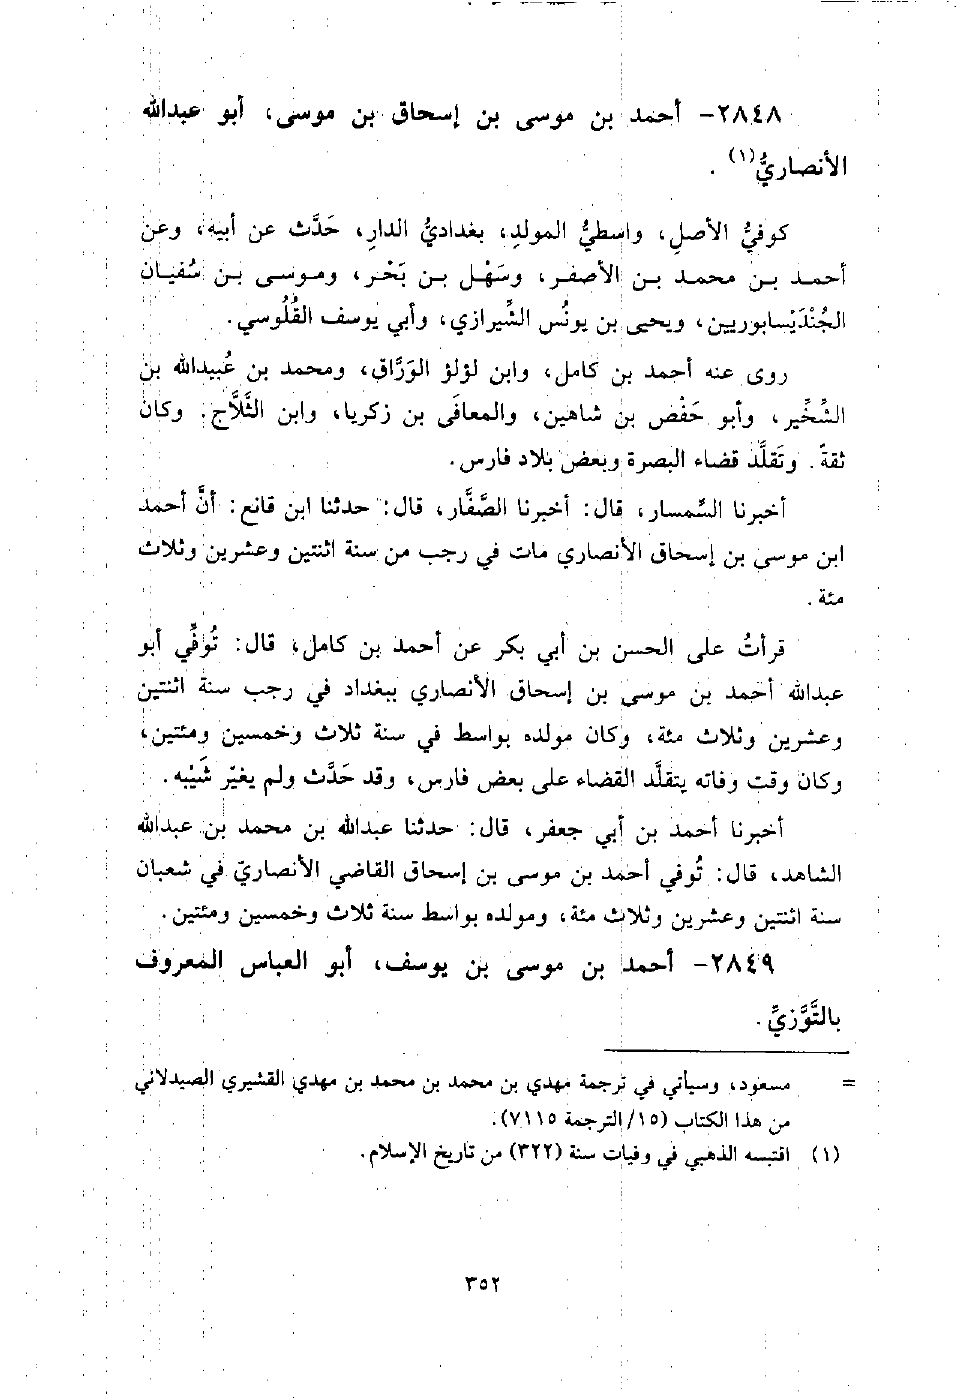 ٢٨٤٨- أحمد بن موسى بن إسحاق بن موسى، أبو عبدالله
الأنصاريُّ(١).
كوفيُّ الأصلِ، واسطيُّ المولدِ، بغداديُّ الدارِ، حَدَّث عن أبيه، وعن
أحمد بن محمد بن الأصفر، وسَهْل بن بَحْر، وموسى بن سُفيان
الجُنْدَيْسابوريين، ويحيى بن يونُس الشِّيرازي، وأبي يوسف القُلُوسي.
روى عنه أحمد بن كامل، وابن لؤلؤ الوَرَّاق، ومحمد بن عُبيدالله بن
الشِّخِّير، وأبو حَفْص بن شاهين، والمعافَى بن زكريا، وابن الثَّلاَّج. وكان
ثقةً. وتَقلَّد قضاء البصرة وبعض بلاد فارس.
أخبرنا السِّمسار، قال: أخبرنا الصَّفَّار، قال: حدثنا ابن قانع: أنَّ أحمد
ابن موسى بن إسحاق الأنصاري مات في رجب من سنة اثنتين وعشرين وثلاث
مئة.
قرأتُ على الحسن بن أبي بكر عن أحمد بن كامل، قال: تُوفِّي أبو
عبدالله أحمد بن موسى بن إسحاق الأنصاري ببغداد في رجب سنة اثنتين
وعشرين وثلاث مئة، وكان مولده بواسط في سنة ثلاث وخمسين ومئتين،
وكان وقت وفاته يتقلَّد القضاء على بعض فارس، وقد حَدَّث ولم يغيّر شَيْبه.
أخبرنا أحمد بن أبي جعفر، قال: حدثنا عبدالله بن محمد بن عبدالله
الشاهد، قال: تُوفي أحمد بن موسى بن إسحاق القاضي الأنصاريّ في شعبان
سنة اثنتين وعشرين وثلاث مئة، ومولده بواسط سنة ثلاث وخمسين ومئتين.
٢٨٤٩- أحمد بن موسى بن يوسف، أبو العباس المعروف
بالتَّوَّزيِّ.
= مسعود، وسيأتي في ترجمة مهدي بن محمد بن محمد بن مهدي القشيري الصيدلاني
من هذا الكتاب (١٥/ الترجمة ٧١١٥).
(١) اقتبسه الذهبي في وفيات سنة (٣٢٢) من تاريخ الإسلام.
٣٥٢